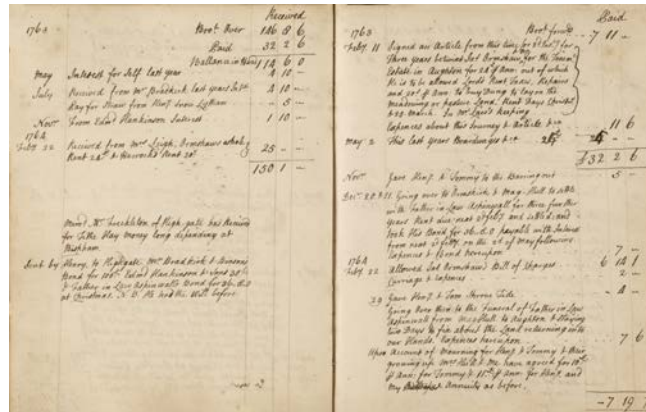 Received
1763 Brot Over 146 8 6
Paid 32 2 6
Ballance in Hand 114 6 0
May Interest for Self last year 4 10 -
July Received from Mr Bradkirk last years Intt 4 10 -
Hay for Straw from Henr from Lytham - 5 -
Novr From Edmd Hankinson Interest 1 10 -
1764
Febry 22 Received from Mrs Leigh, Ormshaws whole
Rent 24 & Rent 20 25 - -
150 1 -
of Highgate has Received
for Tithe Hay money long depending at
Sent by Henry, to Highgate, Mr Bradkirk &
Bond for 100 Edmd Hankinson &
& Father in Law Aspinwalls Bond for 36. 8. 0
at Christmas. N. B. He had the Will before
Paid
1763 Brot forwd - 7 11 -
Febry 11 Signed an Article from this time for
Three years between Jas Ormshaw for the Tenemt
Estate in Aughton for 24 Ann. out of which
He is to allowed Lords Rent Taxes, Repairs
and 20s Ann. to buy Dung to lay on the
meadowing or pasture Land. Rent Days
& 25 March. In Mr Leighs keeping
Expences about this Journey & Article &c 11 6
May 2 This last years Boarding &c 24 - -
£32 2 6
Novr Gave Henr & Tommy to the Barring out 5 -
Decr 20 & 21 Going over to Ormskirk & Mag-Hull to settle
with Father in Law Aspinwall for three further
years. Rent due next and settled; and
took His Bond for 36. 8. 0 payable with Interest
from next on the 2d of May following
Expences & Bond thereupon 7 -
1764
Febry 22 Allowed Jas Ormshaw's Bill of Charges 6 14 1
Carriage & Expences 2 -
29 Gave Henr & Tom Shrove Tide - 4 -
Going Over to the Funeral of Father in Law
Aspinwall from Mag-Hull to Aughton & Staying
two Days to fix about the Land returning into
our Hands. Expences thereupon 7 6
Upon Account of Mourning for Henr & Tommy & their
growing up Mrs Hull & me have agreed for 10s
Ann: for Tommy & 15s Ann: for Henr and
my Annuity as before.
- 7 19